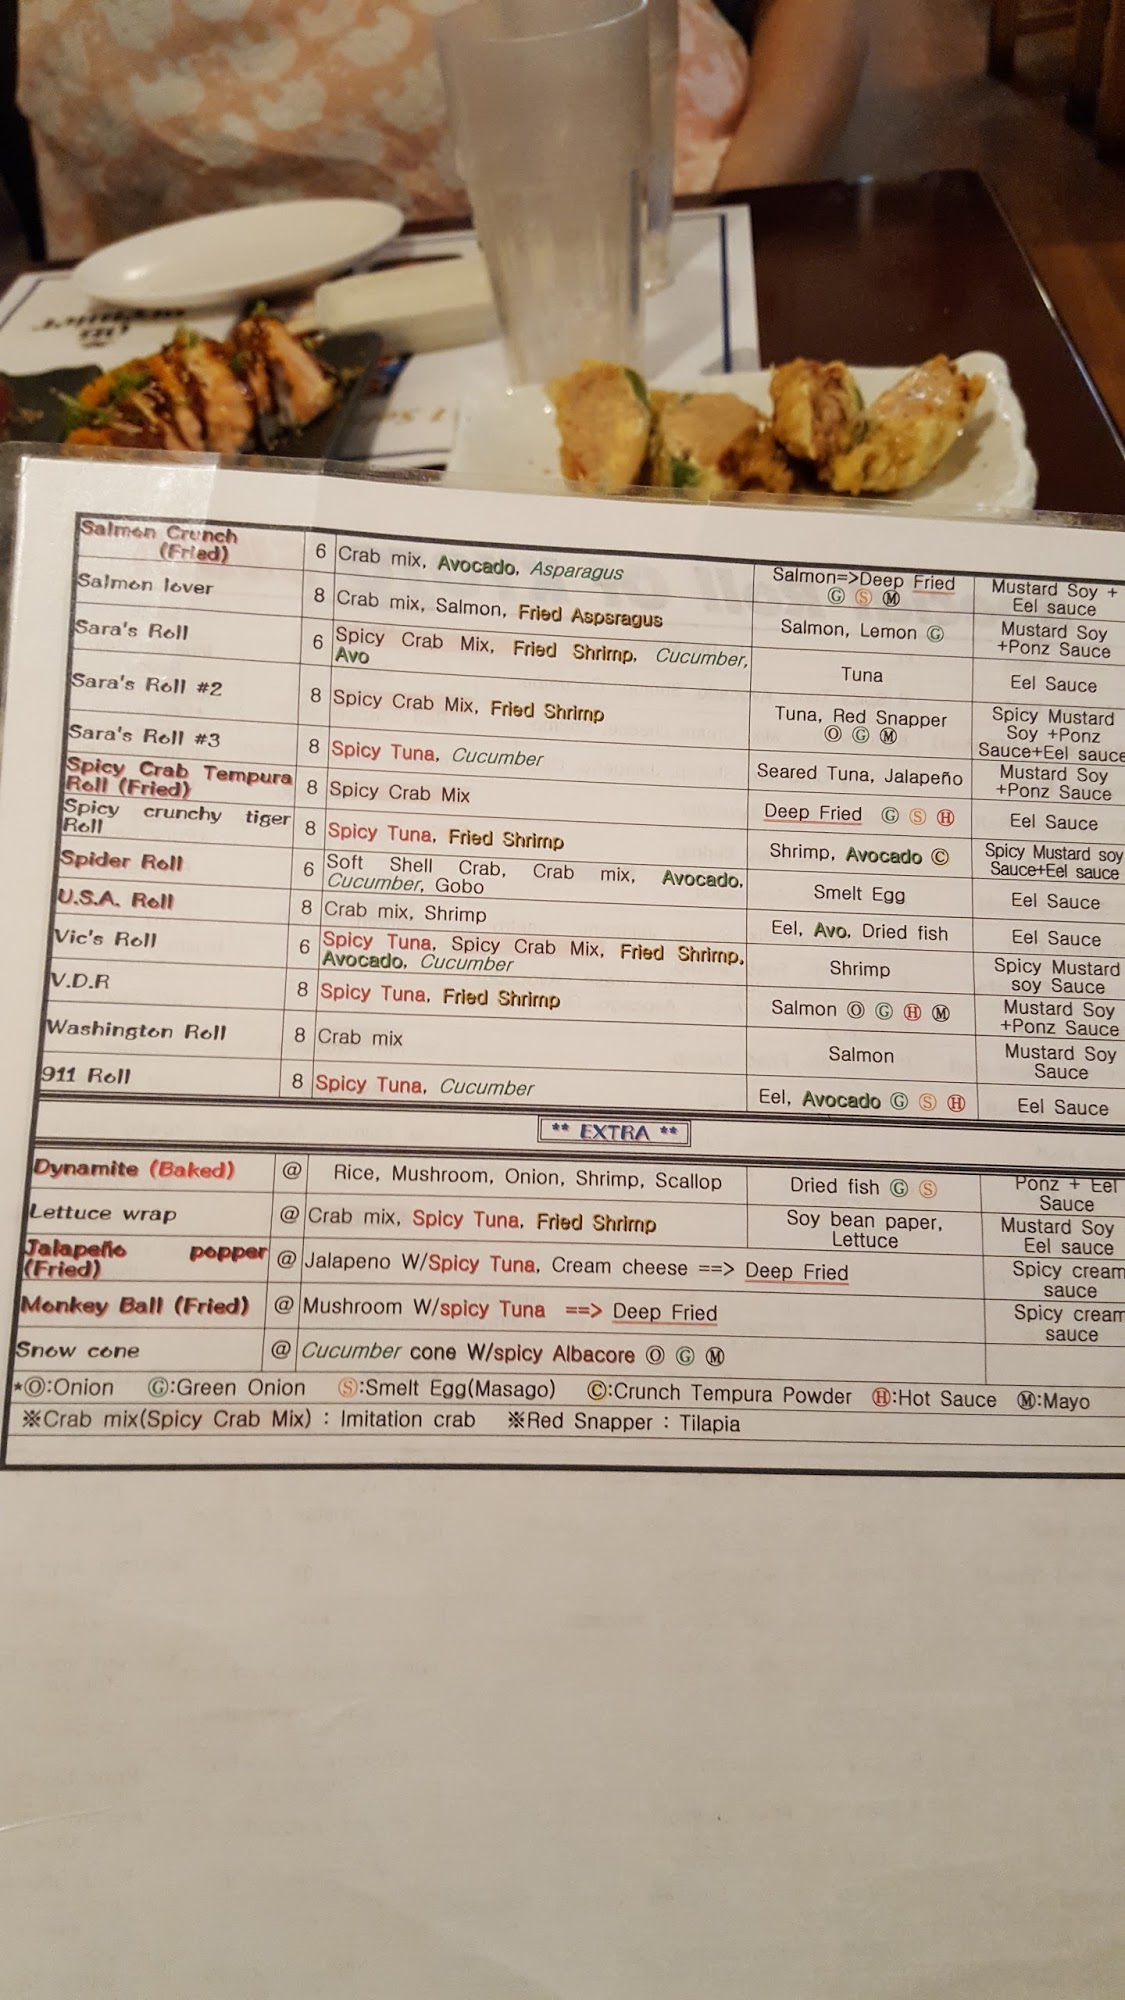 Salmon Crunch (Fried) 6 Crab mix, Avocado, Asparagus Salmon=>Deep Fried Ⓖ Ⓢ Ⓜ Mustard Soy + Eel sauce
Salmon lover 8 Crab mix, Salmon, Fried Aspsragus Salmon, Lemon Ⓖ Mustard Soy +Ponz Sauce
Sara's Roll 6 Spicy Crab Mix, Fried Shrimp, Cucumber, Avo Tuna Eel Sauce
Sara's Roll #2 8 Spicy Crab Mix, Fried Shrimp Tuna, Red Snapper Ⓞ Ⓖ Ⓜ Spicy Mustard Soy +Ponz Sauce+Eel sauce
Sara's Roll #3 8 Spicy Tuna, Cucumber Seared Tuna, Jalapeño Mustard Soy +Ponz Sauce
Spicy Crab Tempura Roll (Fried) 8 Spicy Crab Mix Deep Fried Ⓖ Ⓢ Ⓗ Eel Sauce
Spicy crunchy tiger Roll 8 Spicy Tuna, Fried Shrimp Shrimp, Avocado Ⓒ Spicy Mustard soy Sauce+Eel sauce
Spider Roll 6 Soft Shell Crab, Crab mix, Avocado, Cucumber, Gobo Smelt Egg Eel Sauce
U.S.A. Roll 8 Crab mix, Shrimp Eel, Avo, Dried fish Eel Sauce
Vic's Roll 6 Spicy Tuna, Spicy Crab Mix, Fried Shrimp, Avocado, Cucumber Shrimp Spicy Mustard soy Sauce
V.D.R 8 Spicy Tuna, Fried Shrimp Salmon Ⓞ Ⓖ Ⓗ Ⓜ Mustard Soy +Ponz Sauce
Washington Roll 8 Crab mix Salmon Mustard Soy Sauce
911 Roll 8 Spicy Tuna, Cucumber Eel, Avocado Ⓖ Ⓢ Ⓗ Eel Sauce
** EXTRA **
Dynamite (Baked) @ Rice, Mushroom, Onion, Shrimp, Scallop Dried fish Ⓖ Ⓢ Ponz + Eel Sauce
Lettuce wrap @ Crab mix, Spicy Tuna, Fried Shrimp Soy bean paper, Lettuce Mustard Soy Eel sauce
Jalapeño popper (Fried) @ Jalapeno W/Spicy Tuna, Cream cheese ==> Deep Fried Spicy cream sauce
Monkey Ball (Fried) @ Mushroom W/spicy Tuna ==> Deep Fried Spicy cream sauce
Snow cone @ Cucumber cone W/spicy Albacore Ⓞ Ⓖ Ⓜ
*Ⓞ:Onion Ⓖ:Green Onion Ⓢ:Smelt Egg(Masago) Ⓒ:Crunch Tempura Powder Ⓗ:Hot Sauce Ⓜ:Mayo
※Crab mix(Spicy Crab Mix) : Imitation crab ※Red Snapper : Tilapia